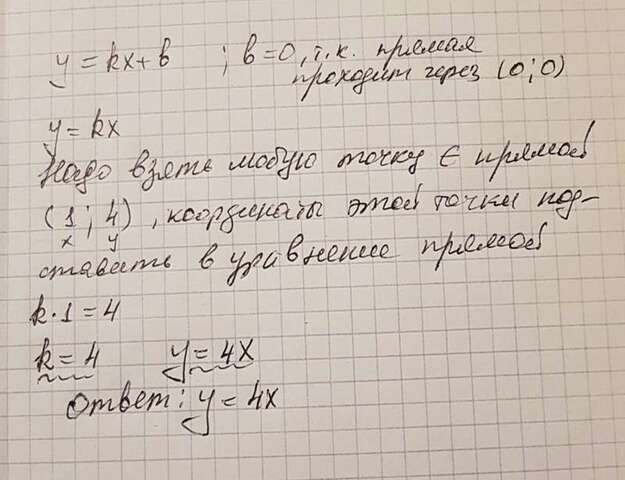 y = kx + b ; b = 0, т.к. прямая
проходит через (0; 0)
y = kx
Надо взять любую точку ∈ прямой
(1; 4), координаты этой точки под-
x y
ставить в уравнение прямой
k·1 = 4
k = 4 y = 4x
Ответ: y = 4x